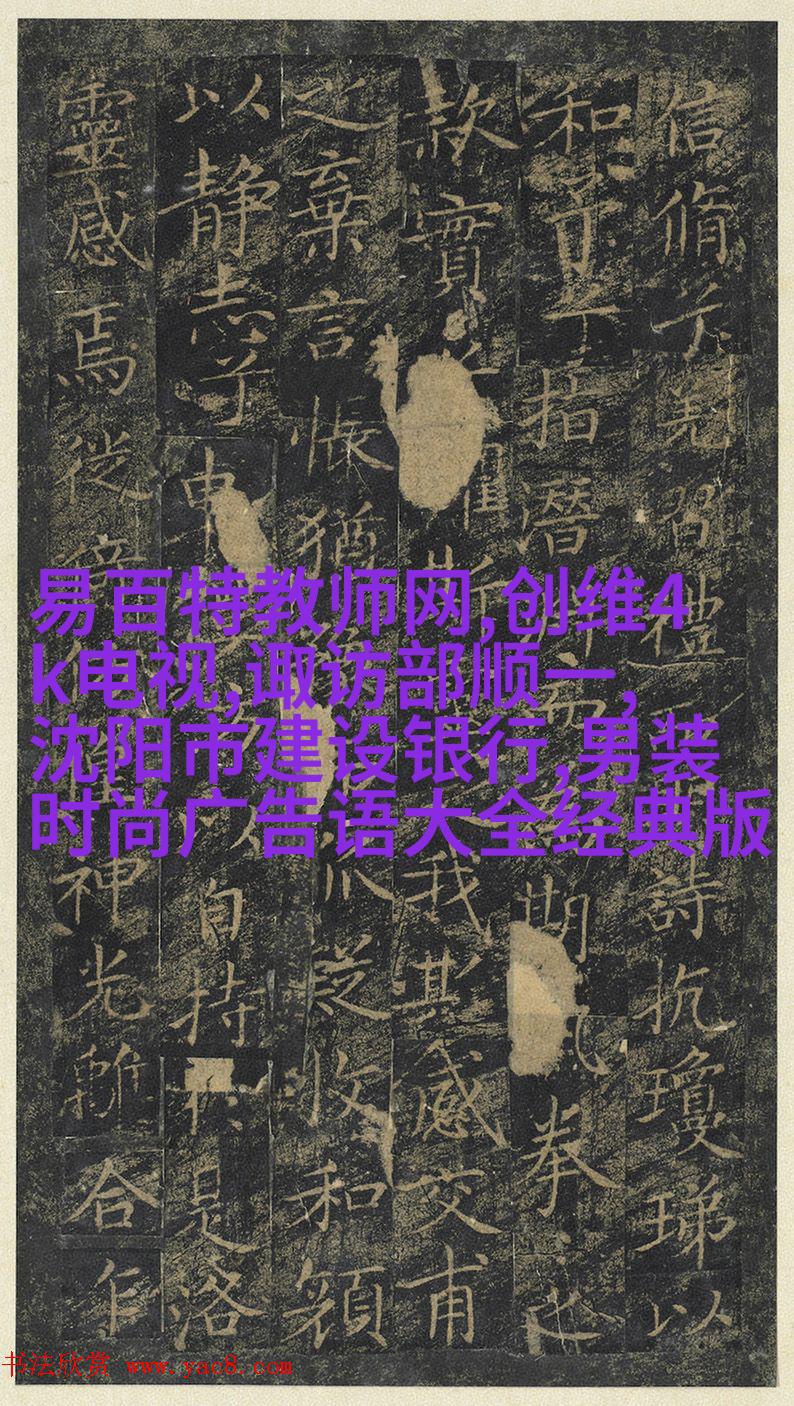 信脩兮羌習禮詩抗瓊珶以
和予兮指潛而期拳〻之
款實之懼斯我其感交甫
之棄言悵猶疑收和顔
以静志兮申以自持是洛
靈感焉徙倚神光離合乍
易百特教师网,创维4
k电视,诹访部顺一,
沈阳市建设银行,男装
时尚广告语大全经典版
书法欣赏 www.yac8.com